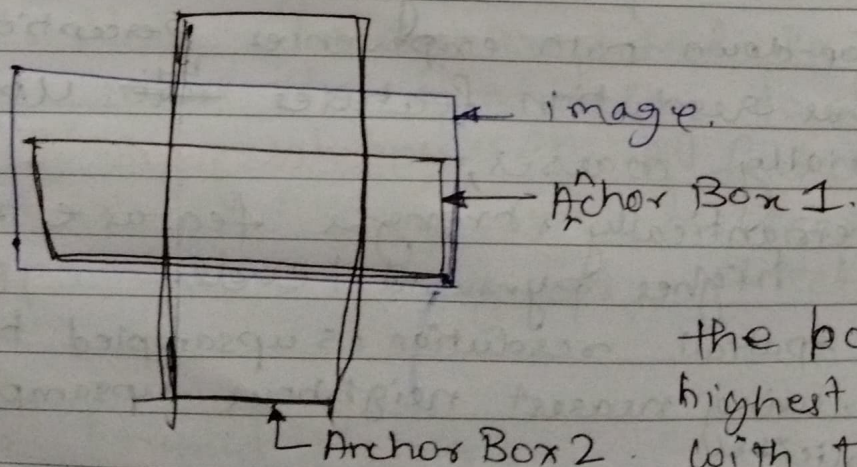 image.
Anchor Box 1.
the bo
highest
Anchor Box 2.
with t